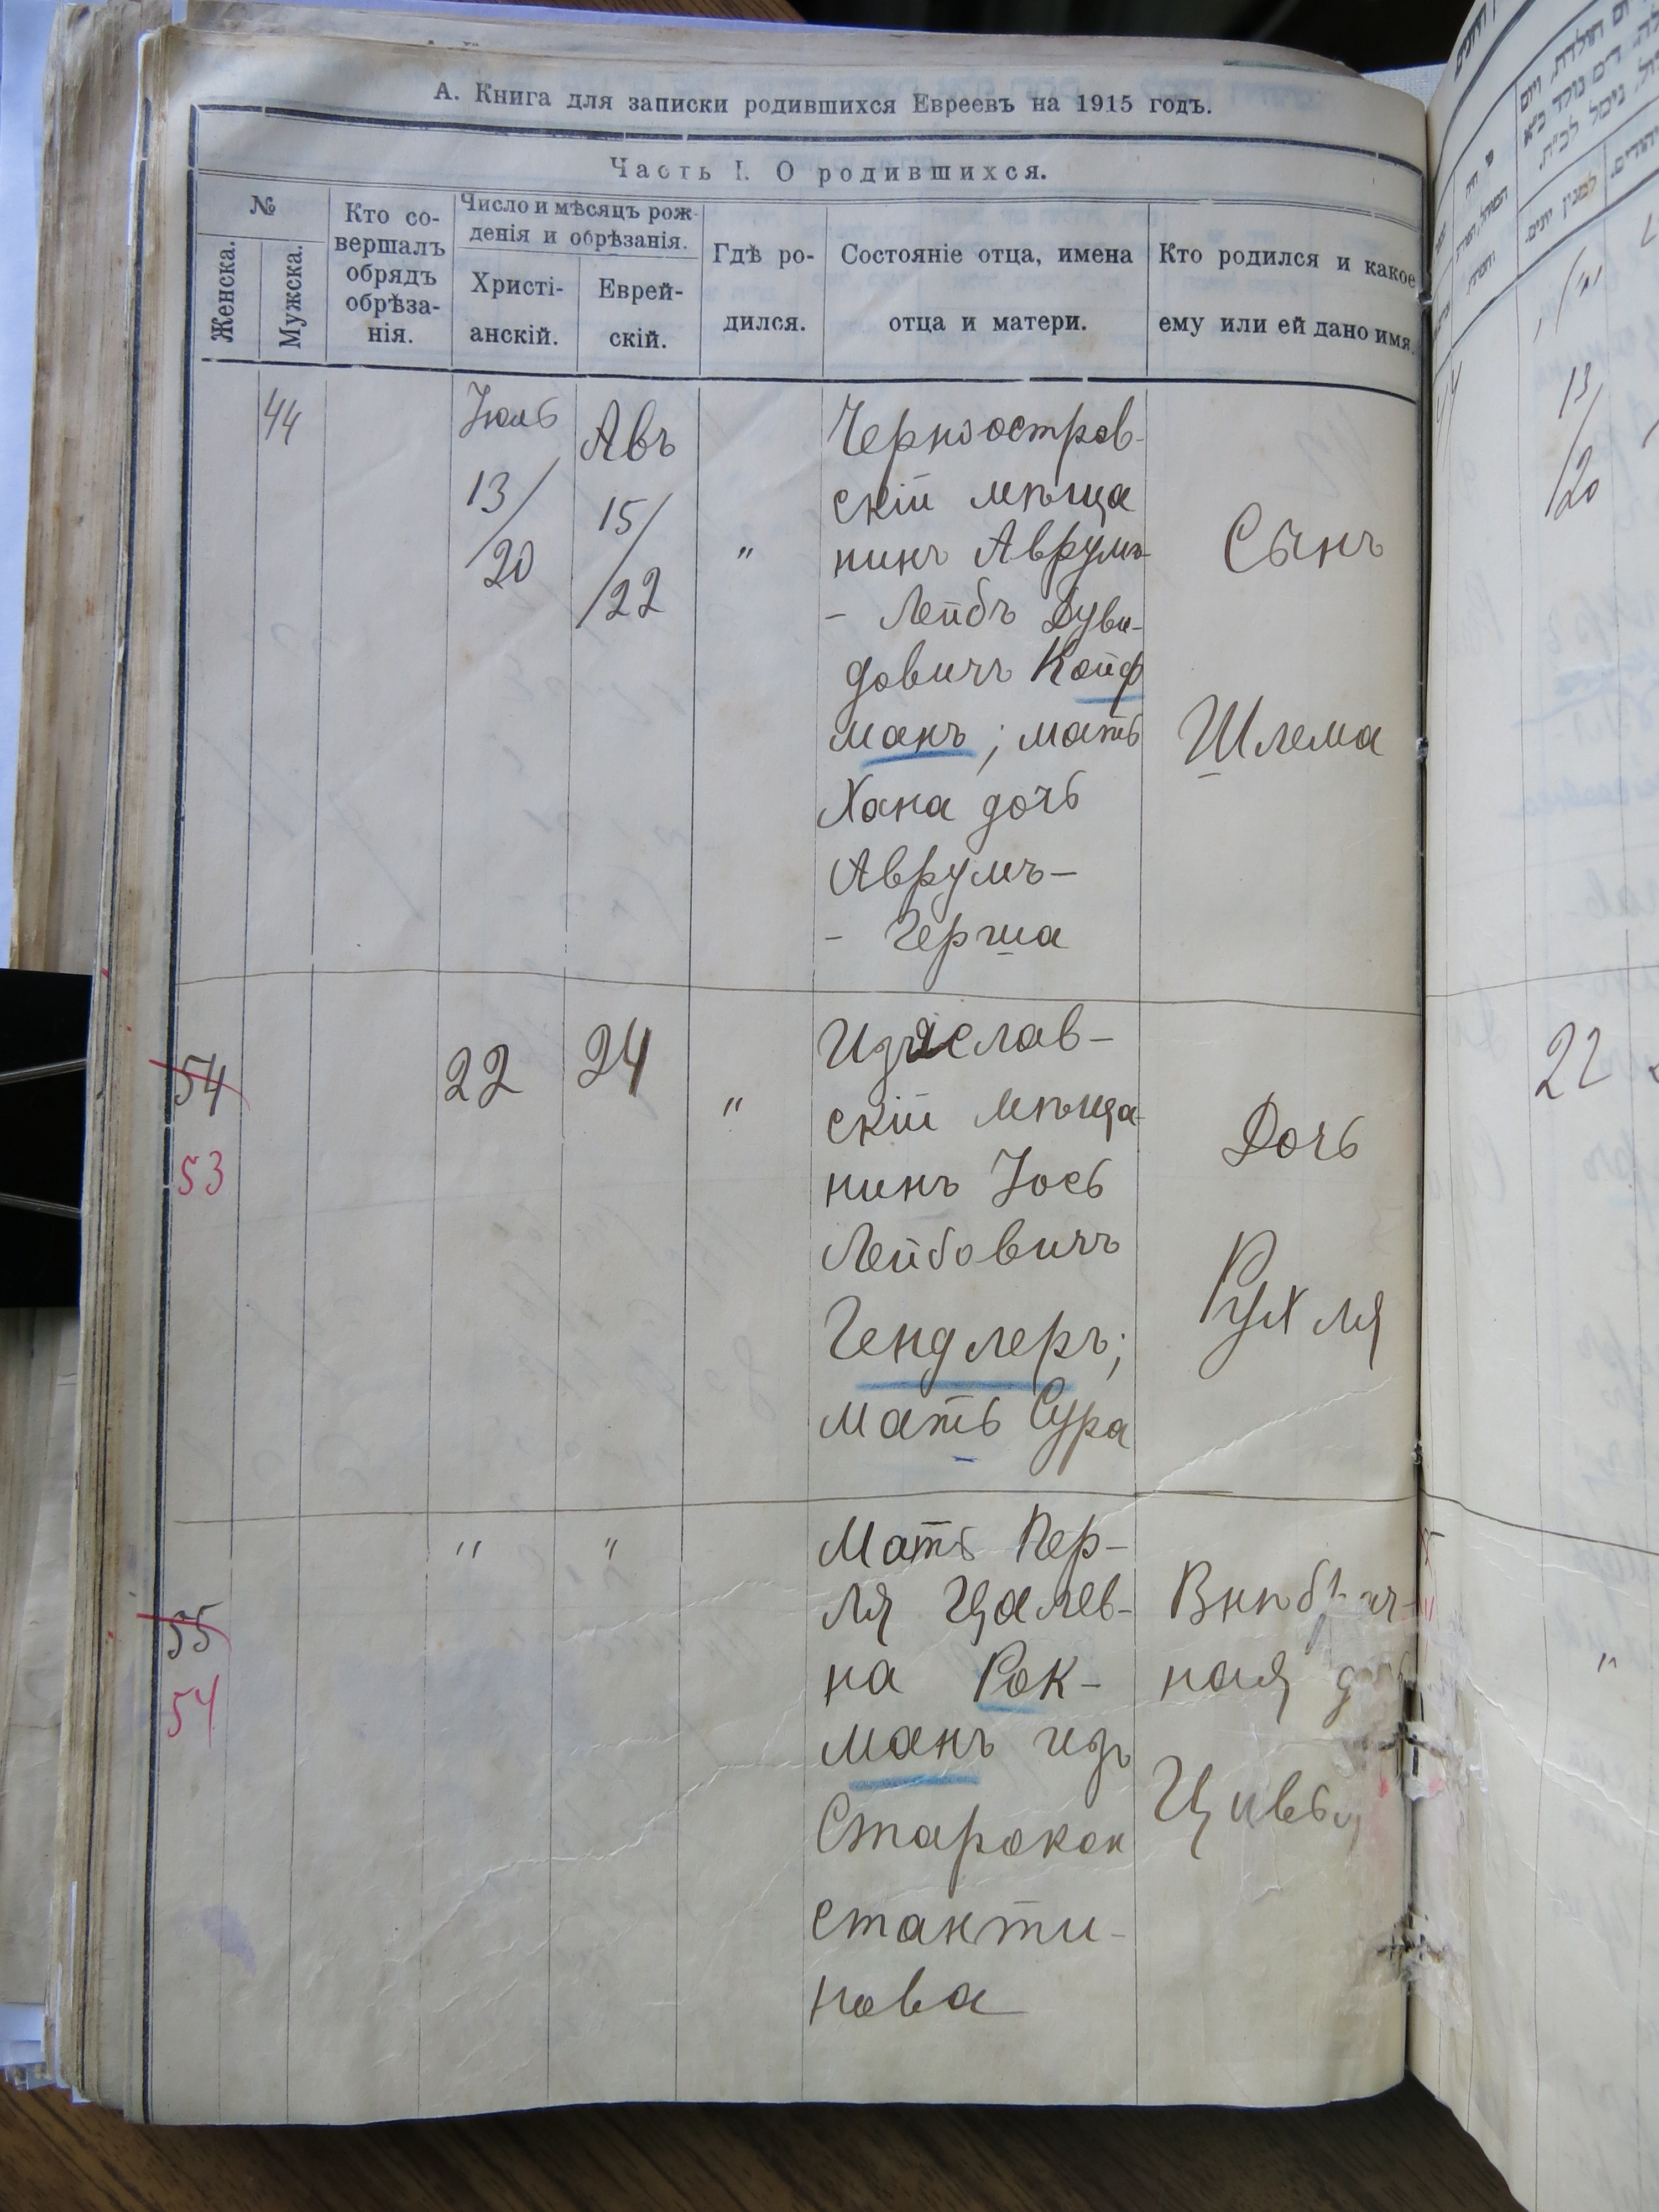 А. Книга для записки родившихся Евреевъ на 1915 годъ.
Часть I. О родившихся.
№
Женска.
Мужска.
Кто со-
вершалъ
обрядъ
обрѣза-
нія.
Число и мѣсяцъ рож-
денія и обрѣзанія.
Христі-
анскій.
Еврей-
скій.
Гдѣ ро-
дился.
Состояніе отца, имена
отца и матери.
Кто родился и какое
ему или ей дано имя.
44
Іюль
13/
20
Авъ
15/
/22
"
Черноостров-
скій мѣща
нинъ Аврумъ-
- Лейбъ Дуви-
довичъ Койф
манъ; мать
Хана дочь
Аврумъ-
- Герша
Сынъ
Шлема
54
53
22
24
"
Изяслав-
скій мѣща-
нинъ Іось
Лейбовичъ
Гендлеръ;
мать Сура
Дочь
Рухля
55
54
"
"
Мать Пер-
ля Цалев-
на Рок-
манъ изъ
Старокон
станти-
нова
ная
13/
/20
22
"